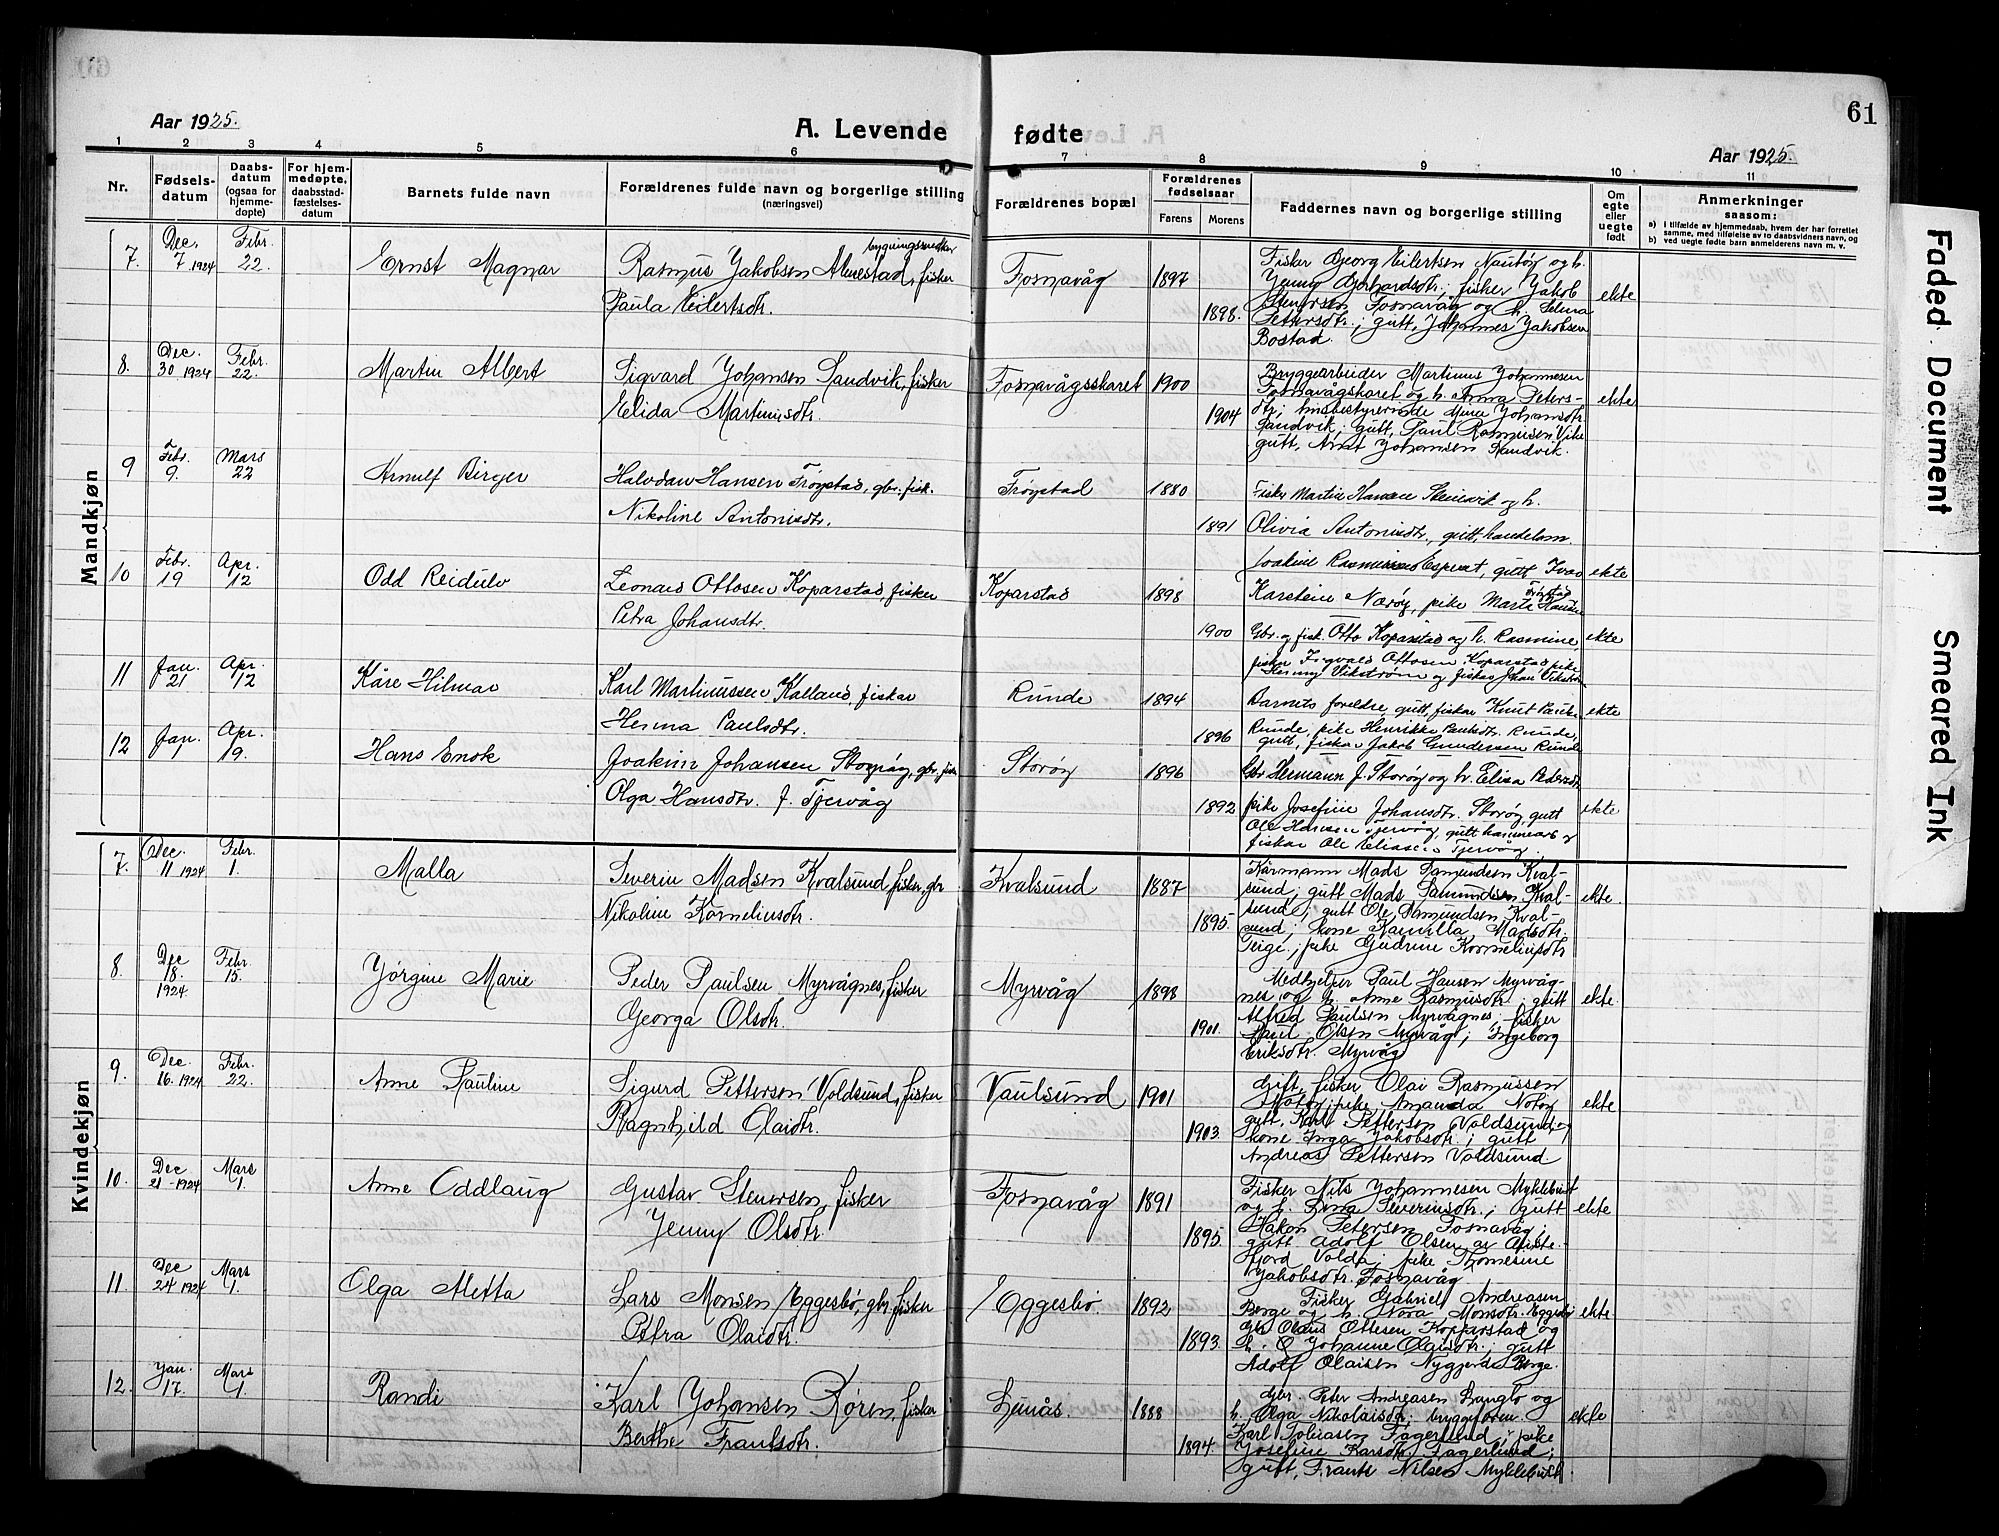 61
Aar 1925.
A. Levende fødte
Aar 1925.
1 2 3 4 5 6 7 8 9 10 11
Nr.
Fødsels-
datum
Daabs-
datum
(ogsaa for
hjemme-
døpte)
For hjem-
medøpte,
daabsstad-
fæstelses-
datum
Barnets fulde navn
Forældrenes fulde navn og borgerlige stilling
(næringsvei)
Forældrenes bopæl
Forældrenes
fødselsaar
Farens Morens
Faddernes navn og borgerlige stilling
Om
egte
eller
uegte
født
Anmerkninger
saasom:
a) I tilfælde av hjemmedaab, hvem der har forrettet
samme, med tilføielse av to daabsvidners navn, og
b) ved uegte fødte barn anmelderens navn m. v.
Mandkjøn
7. Dec. 7 1924 Febr. 22. Ernst Magnar
Rasmus Jakobsen Almestad, fisker
Paula Eilertsdtr.
Fosnavåg 1897 1898.
Fisker Georg Eilertsen Nautøy og h.
Jenny Gerhardsdtr.; fisker Jakob
Stenersen Fosnavåg og h. Selma
Pettersdtr.; gutt, Johannes Jakobsen
Bostad.
ekte
8. Dec. 30 1924 Febr. 22. Martin Albert
Sigvard Johansen Sandvik, fisker
Elida Martinusdtr.
Fosnavågsskaret 1900 1904
Bryggearbeider Martinus Johannesen
Fosnavågskaret og h. Anna Peters-
dtr.; husbestyrerinde Johansdtr.
Sandvik; gutt, Paul Rasmusen Vike
gutt, Arnt Johansen Sandvik.
ekte
9 Febr. 9. Mars 22 Arnulf Birger
Halvdan Hansen Frøystad, gbr. fisk.
Nikoline Antonisdtr.
Frøystad 1880 1891
Fisker Martin Hansen og h.
Olivia Antonisdtr., gutt, handelsm.
Joakim Rasmussen gutt Ivar
Karstein Nærøy, pike Marta Hansen
Frøystad
ekte
10 Febr. 19 Apr. 12 Odd Reidulv
Leonard Ottosen Koparstad, fisker
Petra Johansdtr.
Koparstad 1898 1900
Gbr. og fisk. Otto Koparstad og h. Rasmine,
fisker Ingvald Ottosen Koparstad, pike
Vikstrøm og fisker Johan Vikstrøm
ekte
11 Jan. 21 Apr. 12 Kåre Hilmar
Karl Martinussen Kalland, fisker
Herma Paulsdtr.
Runde 1894 1896
Barnets foreldre, gutt, fisker Knut Pauls.
Runde, pike Henrikke Paulsdtr. Runde,
gutt, fisker Jakob Gundersen Runde
ekte
12 Jan. 7 Apr. 19. Hans Enok
Joakim Johansen Storøy, gbr. fisk
Olga Hansdtr. f. Tjervåg
Storøy 1896 1892
Gbr Hermann J. Storøy og h. Elisa Pedersdtr
pike Josefine Johansdtr. Storøy, gutt
Ole Hansen Tjervåg, gutt og
fisker Ole Eliasen Tjervåg.
ekte
Kvindekjøn
7. Dec. 11 1924 Febr. 1. Malla
Severin Madsen Kvalsund, fisker, gbr
Nikoline Korneliusdtr.
Kvalsund 1887 1895.
Kårmann Mads Samundsen Kval-
sund; gutt Mads Samundsen Kval-
sund; gutt Ole Samundsen Kval-
sund; kone Kamilla Madsdtr.
Teige; pike Gudrun Korneliusdtr
ekte.
8. Dec 18. 1924 Febr. 15. Jørgine Marie
Peder Paulsen Myrvågnes, fisker
Georga Olsdtr.
Myrvåg 1898 1901.
Medhjelper Paul Hansen Myrvåg-
nes og h. Anne Rasmusdtr; gutt
Alfred Paulsen Myrvågnes; fisker
Paul Olsen Myrvåg; Ingeborg
Eriksdtr. Myrvåg
ekte.
9. Dec. 16. 1924 Febr. 22. Anne Pauline
Sigurd Pettersen Voldsund, fisker
Ragnhild Olaidtr.
Vaulsund 1901 1903.
Gift, fisker Olai Rasmussen
Notøy; pike Amanda Notøy
gutt, Karl Pettersen Voldsund;
kone Inga Jakobsdtr.; gutt
Andreas Pettersen Voldsund
ekte
10. Dec 21 - 1924 Mars 1. Anne Oddlaug
Gustav Stenersen, fisker
Jenny Olsdtr.
Fosnavåg 1891 1895.
Fisker Nils Johannesen Myklebust
og h. Lena Severinsdtr.; Gutt
Håkon Petersen Fosnavåg;
gutt Adolf Olsen av
fjord Volda; pike Thomesine
Jakobsdtr. Fosnavåg
ekte
11. Dec 24 1924 Mars 1. Olga Aletta
Lars Monsen Eggesbø, gbr, fisker
Petra Olaidtr.
Eggesbø 1892 1893.
Fisker Gabriel Andreasen
Berge og h. Nora Monsdtr. Eggesbø
Gbr Olaus Ottesen Kopparstad og
h. O Johanne Olaisdtr.; gutt
Adolf Olaisen Nygjerde Berge.
ekte.
12. Jan. 17. Mars 1. Randi
Karl Johansen Røren, fisker
Berthe Frantsdtr.
Leinås. 1888 1894
Gbr Peter Andreasen Langlo og
h. Olga Nikolaisdtr; bryggeform.
Karl Tobiasen Fagerlund; pike
Josefine Larsdtr. Fagerlund;
gutt, Frants Nilsen Myklebust.
ekte
Faded Document
Smeared Ink